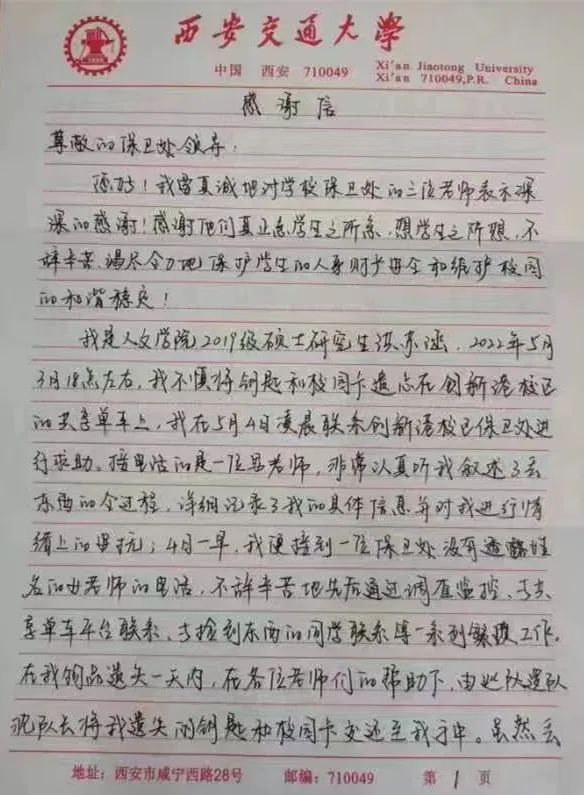 西安交通大学
中国 西安 710049
Xi'an Jiaotong University
Xi'an 710049,P.R. China
感谢信
尊敬的保卫处领导：
您好！我要真诚地对学校保卫处的三位老师表示深
深的感谢！感谢他们真正急学生之所急，想学生之所想，不
辞辛苦、竭尽全力地保护学生的人身财产安全和维护校园
的和谐稳定！
我是人文学院2019级硕士研究生 ，2022年5月
3月18点左右，我不慎将钥匙和校园卡遗忘在创新港校区
的共享单车上，我在5月4日凌晨联系创新港校区保卫处进
行求助。接电话的是一位 老师，非常认真听我叙述了丢
东西的全过程，详细记录了我的具体信息并对我进行情
绪上的安抚；4日一早，我便接到一位保卫处没有透露姓
名的女老师的电话，不辞辛苦地先后通过调查监控、与共
享单车平台联系、与捡到东西的同学联系等一系列繁琐工作。
在我物品遗失一天内，在各位老师们的帮助下，由 队 队
队长将我遗失的钥匙和校园卡交还至我手中。虽然丢
地址：西安市咸宁西路28号 邮编：710049 第 1 页